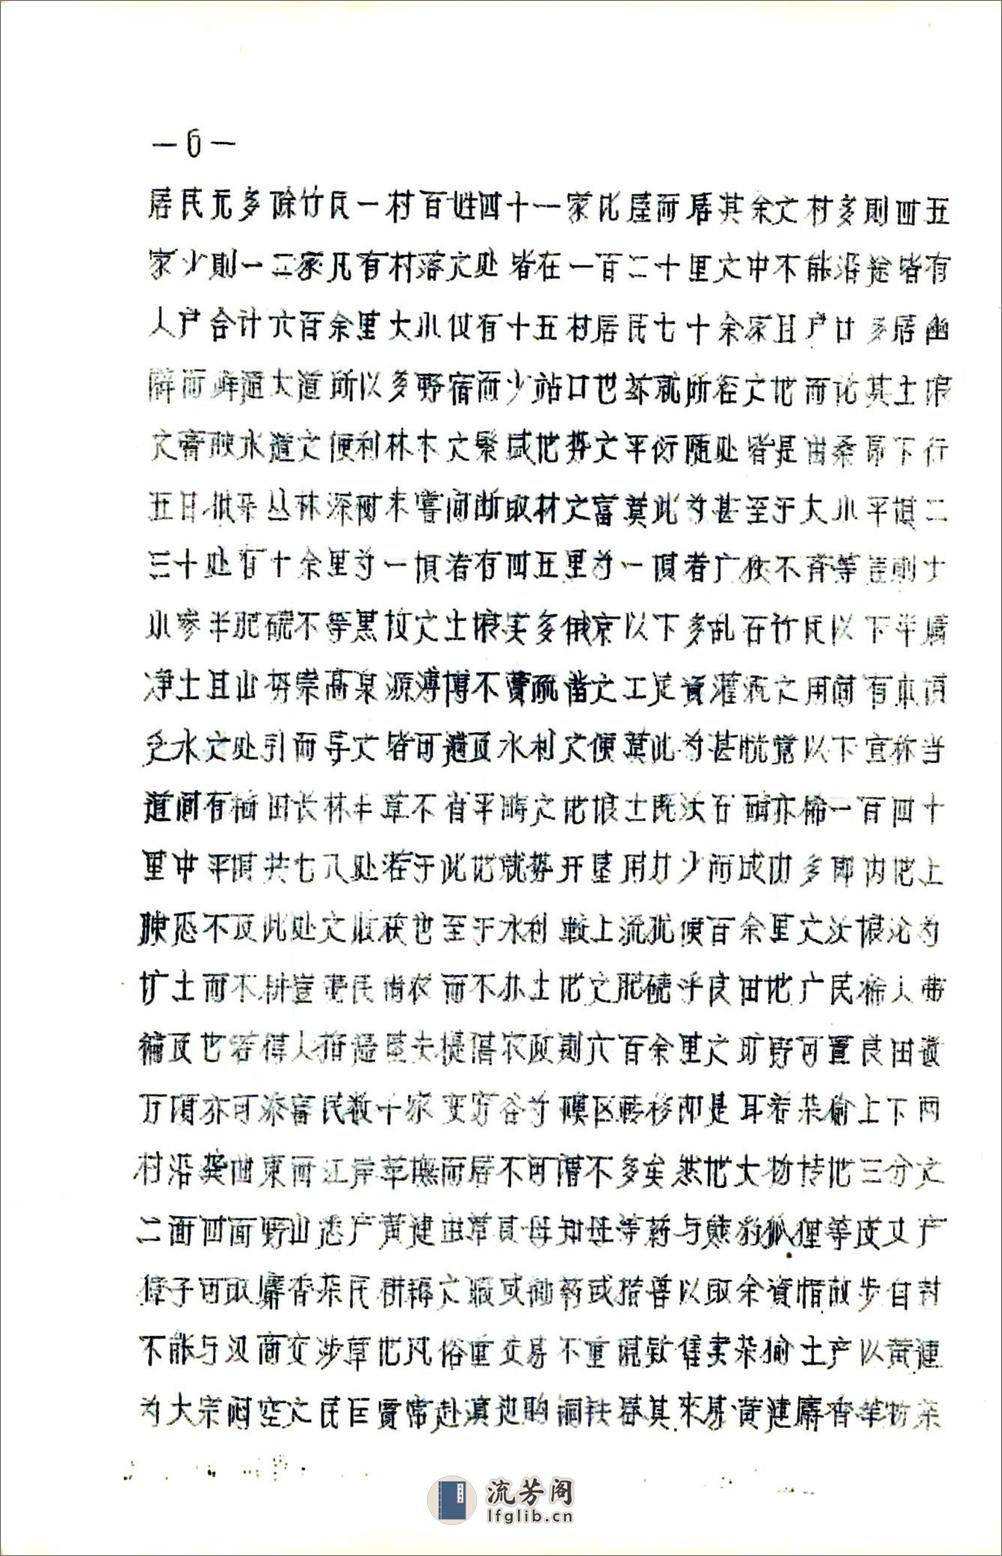 —6—
居民无多除竹民一村百姓四十一家比屋而居其余之村多则四五
家少则一二家凡有村落之处皆在一百二十里之中不能沿途皆有
人户合计六百余里大小仅有十五村居民七十余家且户口多居幽
僻而鲜通大道所以多野宿而少站口也茲就所在之地而论其土壤
之膏腴水道之便利林木之繁盛地势之平衍随处皆是由桑昂下行
五日俶杂丛林深树未尝间断取材之富莫此为甚至于大小平坝二
三十处有十余里为一坝者有四五里为一坝者广狭不齐等差则大
小参半肥硗不等黑坟之土壤实多俄京以下多乱石竹民以下半属
净土且山势崇高泉源溥博不费疏谐之工足资灌溉之用间有本项
受水之处引而导之皆可遍及水利之便莫此为甚忱當以下宜称当
道间有稻田长林丰草不有平畴之地壤土既沃石碛亦稀一百四十
里中平坝共七八处若于此地就势开垦用力少而成功多即内地上
腴恐不及此处之收获也至于水利较上流犹便百余里之沃壤沦为
扩土而不耕岂费民惰农而不办土地之肥硗乎良田地广民稀人带
徧及也若得人招携屋夫提倡农政则六百余里之旷野可置良田数
万顷亦可添富民数十家变穷谷为膜区转移即是耳若杂偷上下两
村沿龚曲东西江岸草撫而居不可谓不多矣然地大物博地三分之
二面四面野山悉产黄连虫草贝母知母等药与熊豹狐狸等皮又产
獐子可取麝香杂民耕耨之暇或锄药或猎兽以取余资惜故步自封
不能与汉商交涉草地风俗重交易不重混欵售卖杂偷土产以黄连
为大宗闷空之民巨贾常赴滇边购铜铁器其来易黄连麝香等物杂
流芳阁
lfglib.cn